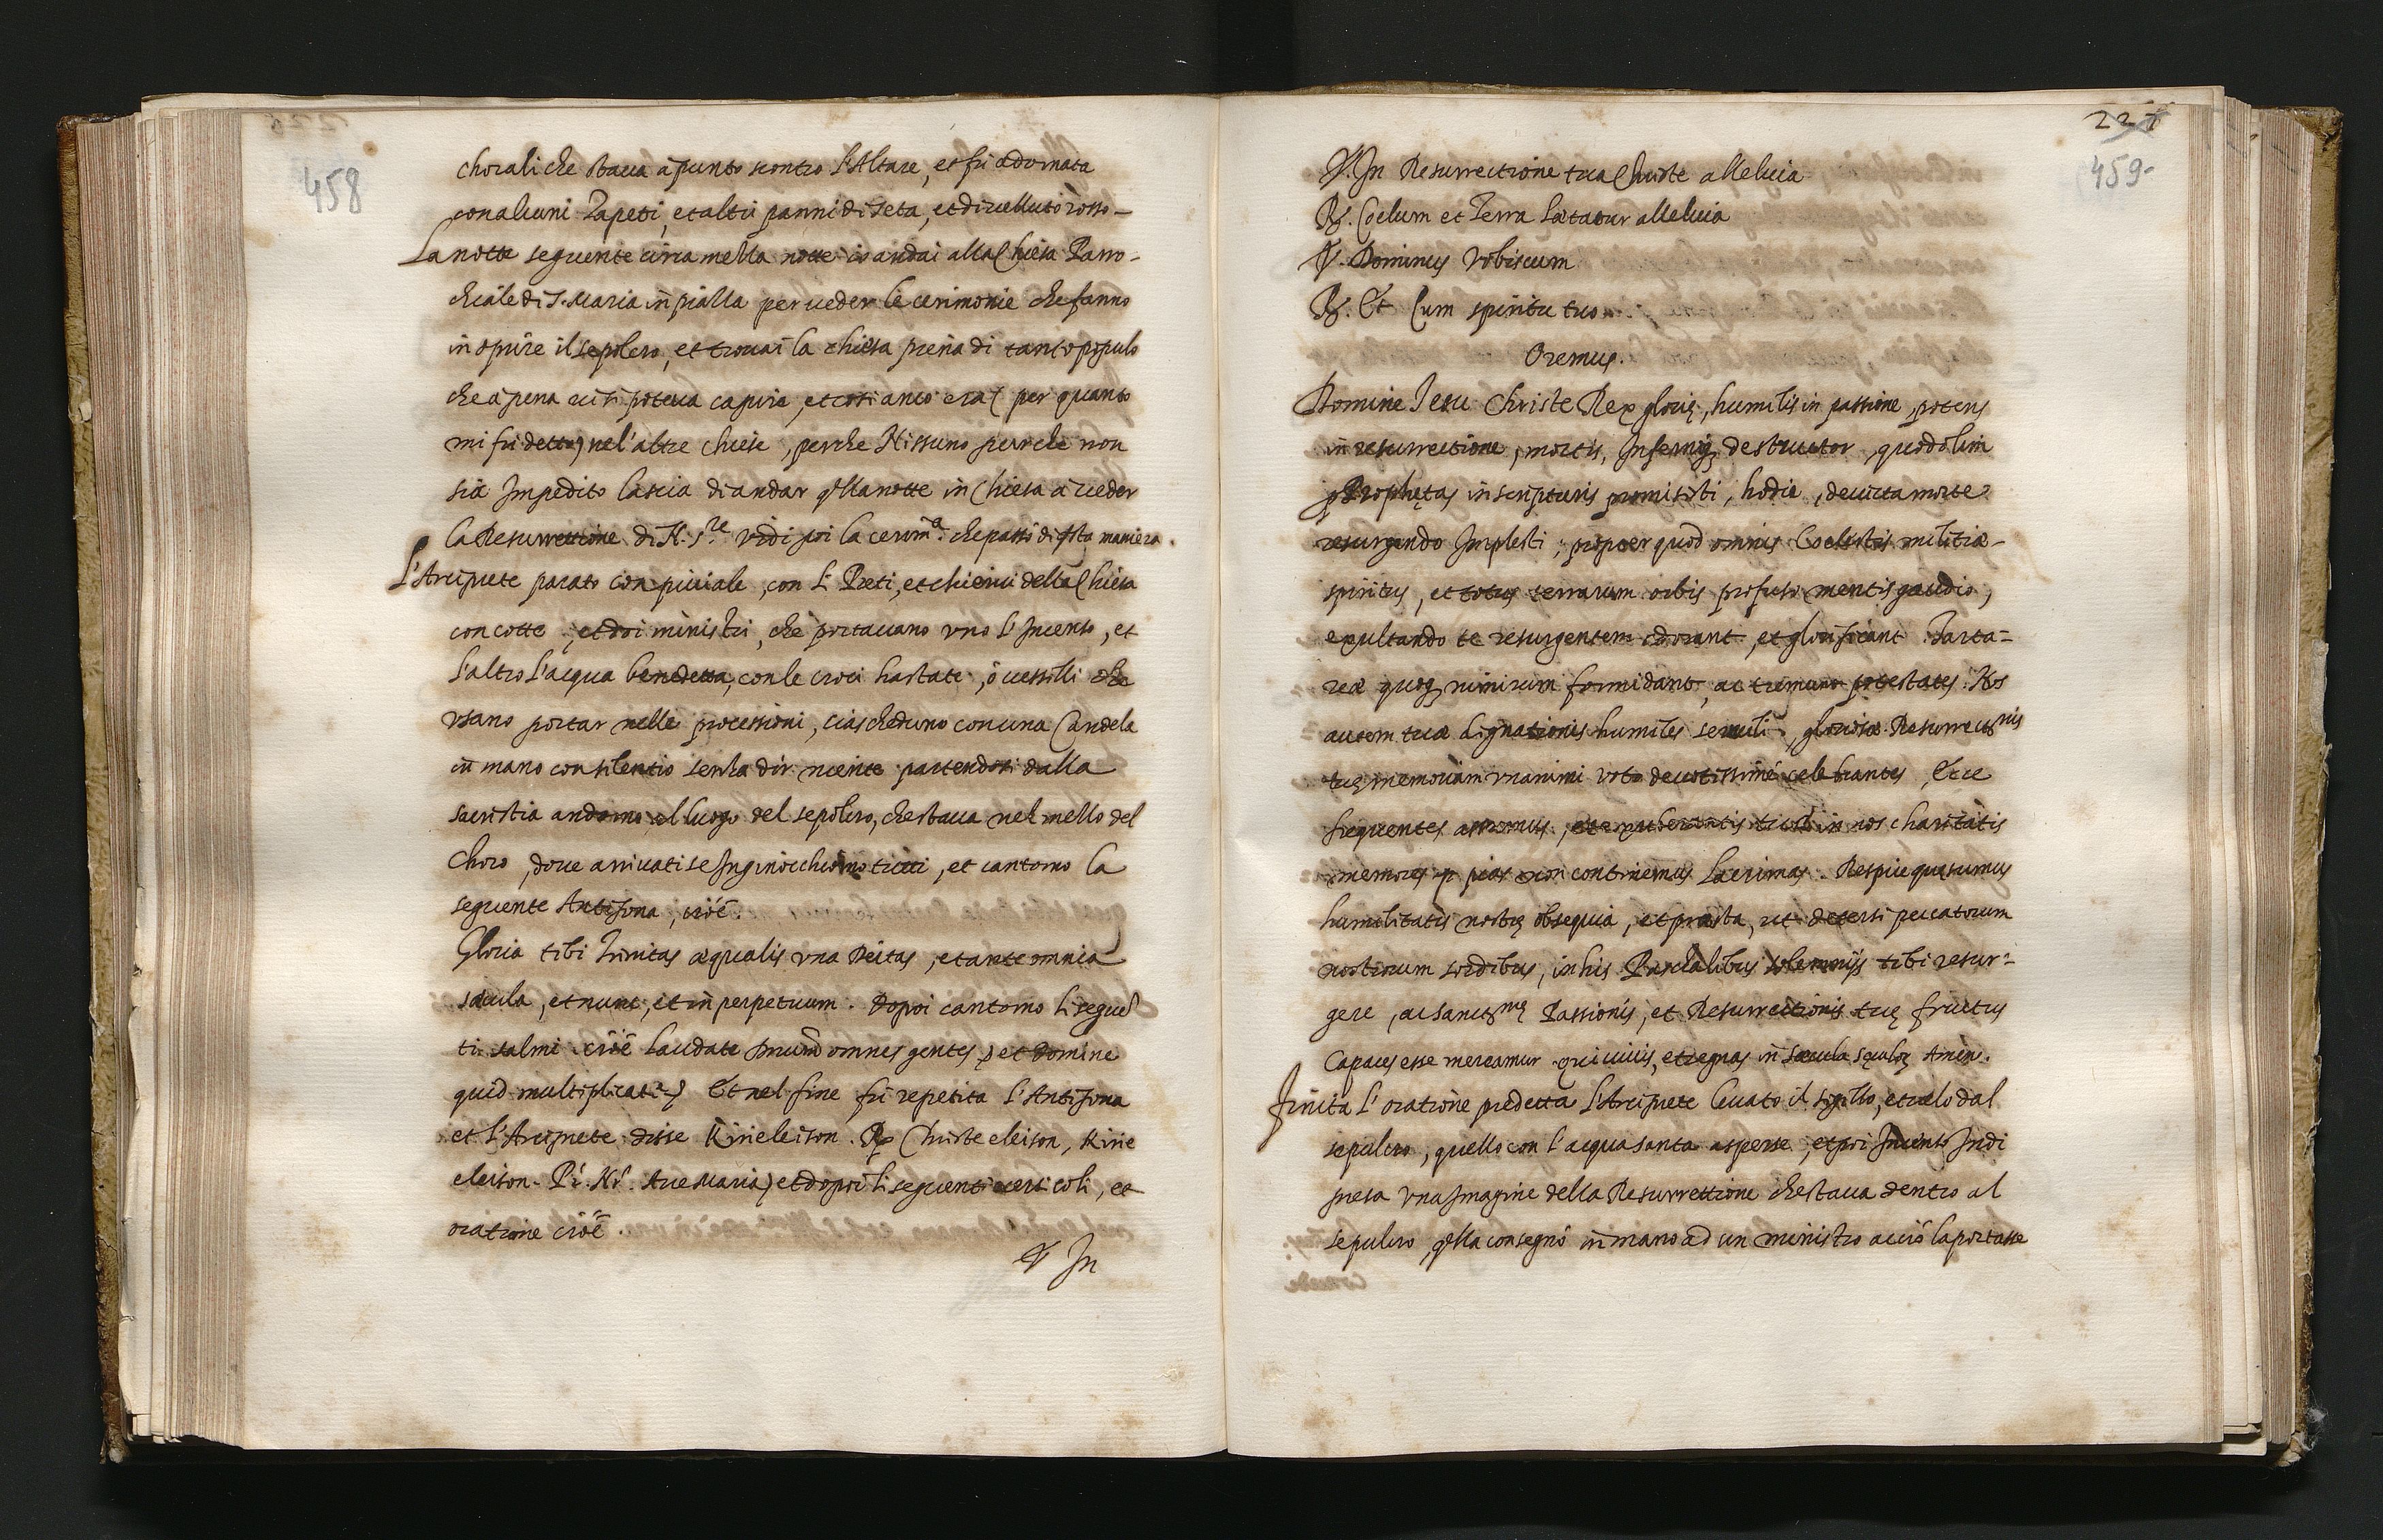 458
chorali che staua à punto scontro l'Altare, et fù adornata
con alcuni Tapeti, et altri panni di seta, et di ueluto rosso –
La notte seguente circa meZza notte io andai alla Chiesa Parro-
chiale di S. Maria in piaZza per ueder le cerimonie che fanno
in aprire il sepolcro, et trouai la chiesa piena di tanto populo
che à pena ui si poteua capire, et cosi anco era (per quanto
mi fù detto) nel'altre chiese, perche Nissuno purche non
sia Impedito lascia di andar q̃lla notte in Chiesa à ueder
la Resurrettione di N. S.re Vidi poi la cerim.a che passò di q̃sta maniera.
L'Arciprete parato con piuiale, con li Preti, et chierici della Chiesa
con cotte, et doi ministri, che portauano vno l'Incenso, et
l'altro l'acqua benedetta, con le croci hastate, ò uessilli che
vsano portar nelle processioni, ciascheduno con una Candela
in mano con silentio senZa dir niente partendosi dalla
sacristia andorno al luogo del sepolcro, che staua nel meZzo del
choro, doue arriuati se Inginocchiorno tutti, et cantorno la
seguente Antifona, cioè.
Gloria tibi Trinitas æqualis vna Deitas, et ante omnia
sæcula, et nunc, et in perpetuum. Dopoi cantorno li seguẽ
ti salmi cioè laudate Dnum omnes gentes, et Domine
quid multiplicati Et nel fine fù repetita l'Antifona
et l'Arciprete disse Kirieleison. R Christe eleison, Kirie
eleison. Pr. Nr. Aue Maria) et dopoi li seguenti uersicoli, et
oratione cioè.
V In
227
459
V. In Resurrectione tua Christe alleluia
R. Coelum et Terra lætatur alleluia
V. Dominus Vobiscum
R. Et Cum spiritu tuo
Oremus.
Domine Iesu Christe Rex glorię, humilis in passione, potens
in resurrectione, mortis, Inferniq; destructor, quod olim
p Prophętas in scripturis promisisti, hodie, deuicta morte
resurgendo Implesti; propter quod omnis Coelestis militiæ
spiritus, et totus terrarum orbis profuso mentis gaudio,
exultando te resurgentem adorant, et glorificant. Tarta=
reæ quoq; nimirum formidant, ac tremunt potestates. Nos
autem tuæ dignationis humiles seruuli, gloriosæ Resurrectnis
tuę memoriam vnanimi voto deuotissimè celebrantes, Ecce
frequentes assumus, et exuberantis tuæ in nos charitatis
memores p pias non continemus lacrimas. Respice quęsumus
humilitatis nostrę obsequia, et præsta, ut detersi peccatorum
nostrorum sordibus, in his Paschalibus solemnijs tibi resur=
gere, ac sanctmę Passionis, et Resurrectionis tuę fructus
Capaces esse mereamur qui uiuis, et regnas in sæcula sęculoꝝ Amen.
Finita l'oratione predetta l'Arciprete leuato il sigillo, et uelo dal
sepulcro, quello con l'acqua santa asperse, et poi Incensò Indi
presa vna Imagine della Resurrettione che staua dentro al
sepulcro, q̃lla consegnò in mano ad un ministro acciò la portasse